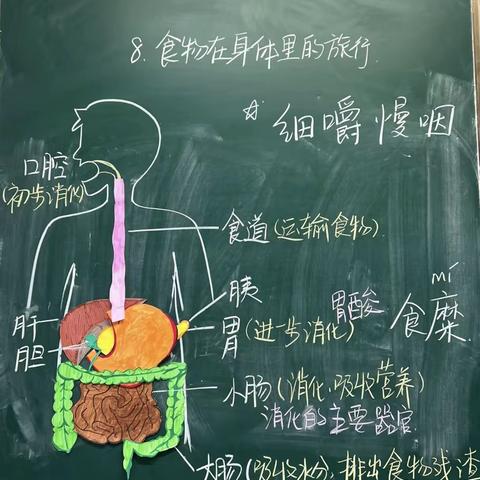 8. 食物在身体里的旅行
☆ 细嚼慢咽
口腔
(初步消化)
食道(运输食物)
mí
胰
胃酸
食糜
肝
胃(进一步消化)
胆
小肠(消化.吸收营养)
消化的主要器官
大肠(吸收水分,排出食物残渣